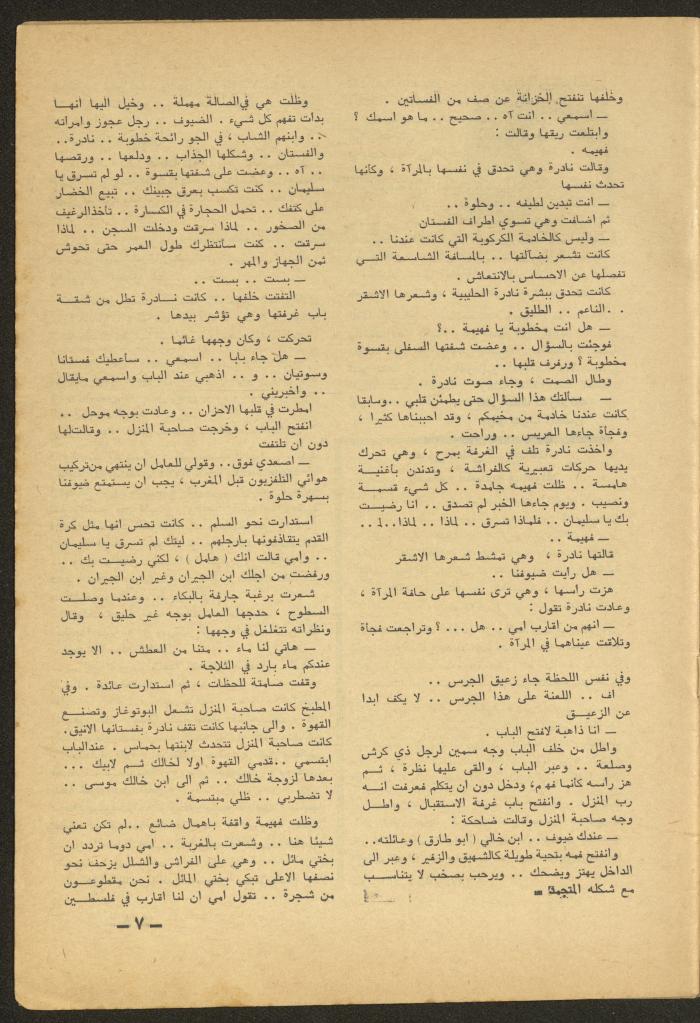 وخلفها تنفتح الخزانة عن صف من الفساتين .
ـ اسمعي .. انت آه .. صحيح .. ما هو اسمك ؟
وابتلعت ريقها وقالت :
فهيمه .
وقالت نادرة وهي تحدق في نفسها بالمرآة ، وكأنها
تحدث نفسها
ـ انت تبدين لطيفه .. وحلوة ..
ثم اضافت وهي تسوي اطراف الفستان
ـ وليس كالخادمة الكركوبة التي كانت عندنا ..
كانت تشعر بضآلتها .. بالمسافة الشاسعة التي
تفصلها عن الاحساس بالانتعاش .
كانت تحدق ببشرة نادرة الحليبية ، وشعرها الاشقر
.. الناعم .. الطليق .
ـ هل انت مخطوبة يا فهيمة ..؟
فوجئت بالسؤال .. وعضت شفتها السفلى بقسوة
مخطوبة ؟ ورفرف قلبها ..
وطال الصمت ، وجاء صوت نادرة .
ـ سألتك هذا السؤال حتى يطمئن قلبي ..وسابقا
كانت عندنا خادمة من مخيمكم ، وقد احببناها كثيرا ،
وفجأة جاءها العريس .. وراحت .
واخذت نادرة تلف في الغرفة بمرح ، وهي تحرك
يديها حركات تعبيرية كالفراشة ، وتدندن بأغنية
هامسة .. ظلت فهيمه جامدة .. كل شيء قسمة
ونصيب . ويوم جاءها الخبر لم تصدق .. انا رضيت
بك يا سليمان .. فلماذا تسرق .. لماذا .. لماذا..لـ ..
ـ فهيمة ..
قالتها نادرة ، وهي تمشط شعرها الاشقر
ـ هل رأيت ضيوفنا ..
هزت رأسها ، وهي ترى نفسها على حافة المرآة ،
وعادت نادرة تقول :
ـ انهم من اقارب امي .. هل ... ؟ وتراجعت فجأة
وتلاقت عيناهما في المرآة .
وفي نفس اللحظة جاء زعيق الجرس ..
اف .. اللعنة على هذا الجرس .. لا يكف ابدا
عن الزعيق
ـ انا ذاهبة لافتح الباب .
واطل من خلف الباب وجه سمين لرجل ذي كرش
وصلعة .. وعبر الباب ، والقى عليها نظرة ، ثم
هز رأسه كأنما فهم ، ودخل دون ان يتكلم فعرفت انه
رب المنزل . وانفتح باب غرفة الاستقبال ، واطل
وجه صاحبة المنزل وقالت ضاحكة :
ـ عندك ضيوف .. ابن خالي ( ابو طارق ) وعائلته..
وانفتح فمه بتحية طويلة كالشهيق والزفير ، وعبر الى
الداخل يهتز ويضحك .. ويرحب بصخب لا يتناسب
مع شكله
وظلت هي في الصالة مهملة .. وخيل اليها انها
بدات تفهم كل شيء . الضيوف .. رجل عجوز وامرأته
.. وابنهم الشاب ، في الجو رائحة خطوبة .. نادرة..
والفستان .. وشكلها الجذاب .. ودلعها .. ورقصها
.. آه .. وعضت على شفتها بقسوة .. لو لم تسرق يا
سليمان .. كنت تكسب بعرق جبينك .. تبيع الخضار
على كتفك .. تحمل الحجارة في الكسارة .. تأخذالرغيف
من الصخور .. لماذا سرقت ودخلت السجن .. لماذا
سرقت .. كنت سأنتظرك طول العمر حتى تحوش
ثمن الجهاز والمهر .
ـ بست .. بست ..
التفتت خلفها .. كانت نادرة تطل من شقة
باب غرفتها وهي تؤشر بيدها .
تحركت ، وكان وجهها غائما .
ـ هل جاء بابا .. اسمعي .. ساعطيك فستانا
وسوتيان .. و .. اذهبي عند الباب واسمعي مايقال
.. واخبريني .
امطرت في قلبها الاحزان .. وعادت بوجه موحل ..
انفتح الباب ، وخرجت صاحبة المنزل .. وقالتلها
دون ان تلتفت
ـ اصعدي فوق.. وقولي للعامل ان ينتهي من تركيب
هوائي التلفزيون قبل المغرب ، يجب ان يستمتع ضيوفنا
بسهرة حلوة .
استدارت نحو السلم .. كانت تحس انها مثل كرة
القدم يتقاذفونها بارجلهم .. ليتك لم تسرق يا سليمان
.. وامي قالت انك ( هامل ) ، لكني رضيت بك ..
ورفضت من اجلك ابن الجيران وغير ابن الجيران .
شعرت برغبة جارفة بالبكاء .. وعندما وصلت
السطوح ، حدجها العامل بوجه غير حليق ، وقال
ونظراته تتغلغل في وجهها :
ـ هاتي لنا ماء .. متنا من العطش .. الا يوجد
عندكم ماء بارد في الثلاجة .
وقفت صامتة للحظات ، ثم استدارت عائدة . وفي
المطبخ كانت صاحبة المنزل تشعل البوتوغاز وتصنع
القهوة . والى جانبها كانت تقف نادرة بفستانها الانيق.
كانت صاحبة المنزل تتحدث لابنتها بحماس . عندالباب
ابتسمي ..قدمي القهوة اولا لخالك ثم لابيك ...
بعدها لزوجة خالك .. ثم الى ابن خالك موسى ..
لا تضطربي .. ظلي مبتسمة .
وظلت فهيمة واقفة باهمال ضائع ..لم تكن تعني
شيئا هنا .. وشعرت بالغربة .. امي دوما تردد ان
بختي مائل .. وهي على الفراش والشلل يزحف نحو
نصفها الاعلى تبكي بختي المائل . نحن مقطوعون
من شجرة .. تقول امي ان لنا اقارب في فلسطين
ـ ٧ ـ